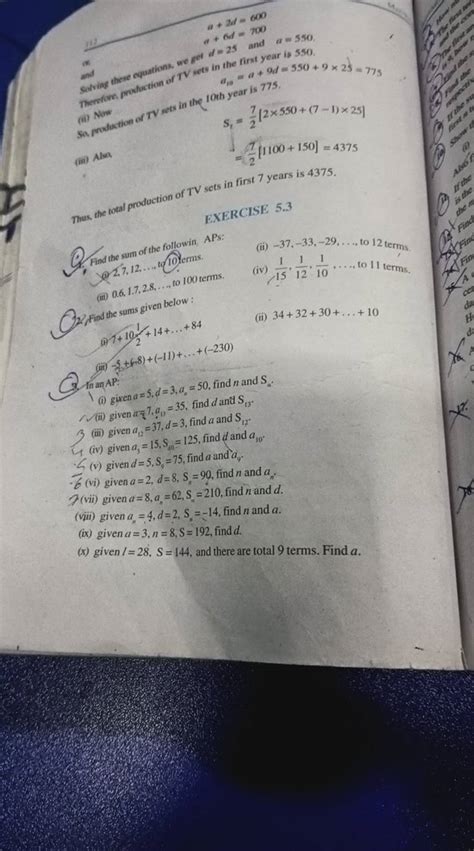 112
a + 2d = 600
or, a + 6d = 700
and
Solving these equations, we get d = 25 and a = 550.
Therefore, production of TV sets in the first year is 550.
(ii) Now a₁₀ = a + 9d = 550 + 9 × 25 = 775
So, production of TV sets in the 10th year is 775.
(iii) Also, S₇ = 7/2 [2 × 550 + (7 – 1) × 25]
= 7/2 [1100 + 150] = 4375
Thus, the total production of TV sets in first 7 years is 4375.
EXERCISE 5.3
Find the sum of the followin. APs:
(i) 2, 7, 12, . . ., to 10 terms. (ii) –37, –33, –29, . . ., to 12 terms.
(iii) 0.6, 1.7, 2.8, . . ., to 100 terms. (iv) 1/15, 1/12, 1/10, . . ., to 11 terms.
2. Find the sums given below :
(i) 7 + 10 1/2 + 14 + . . . + 84 (ii) 34 + 32 + 30 + . . . + 10
(iii) –5 + (–8) + (–11) + . . . + (–230)
In an AP:
(i) given a = 5, d = 3, aₙ = 50, find n and Sₙ.
(ii) given a = 7, a₁₃ = 35, find d and S₁₃.
3 (iii) given a₁₂ = 37, d = 3, find a and S₁₂.
4 (iv) given a₃ = 15, S₁₀ = 125, find d and a₁₀.
5 (v) given d = 5, S₉ = 75, find a and a₉.
6 (vi) given a = 2, d = 8, Sₙ = 90, find n and aₙ.
7 (vii) given a = 8, aₙ = 62, Sₙ = 210, find n and d.
(viii) given aₙ = 4, d = 2, Sₙ = –14, find n and a.
(ix) given a = 3, n = 8, S = 192, find d.
(x) given l = 28, S = 144, and there are total 9 terms. Find a.